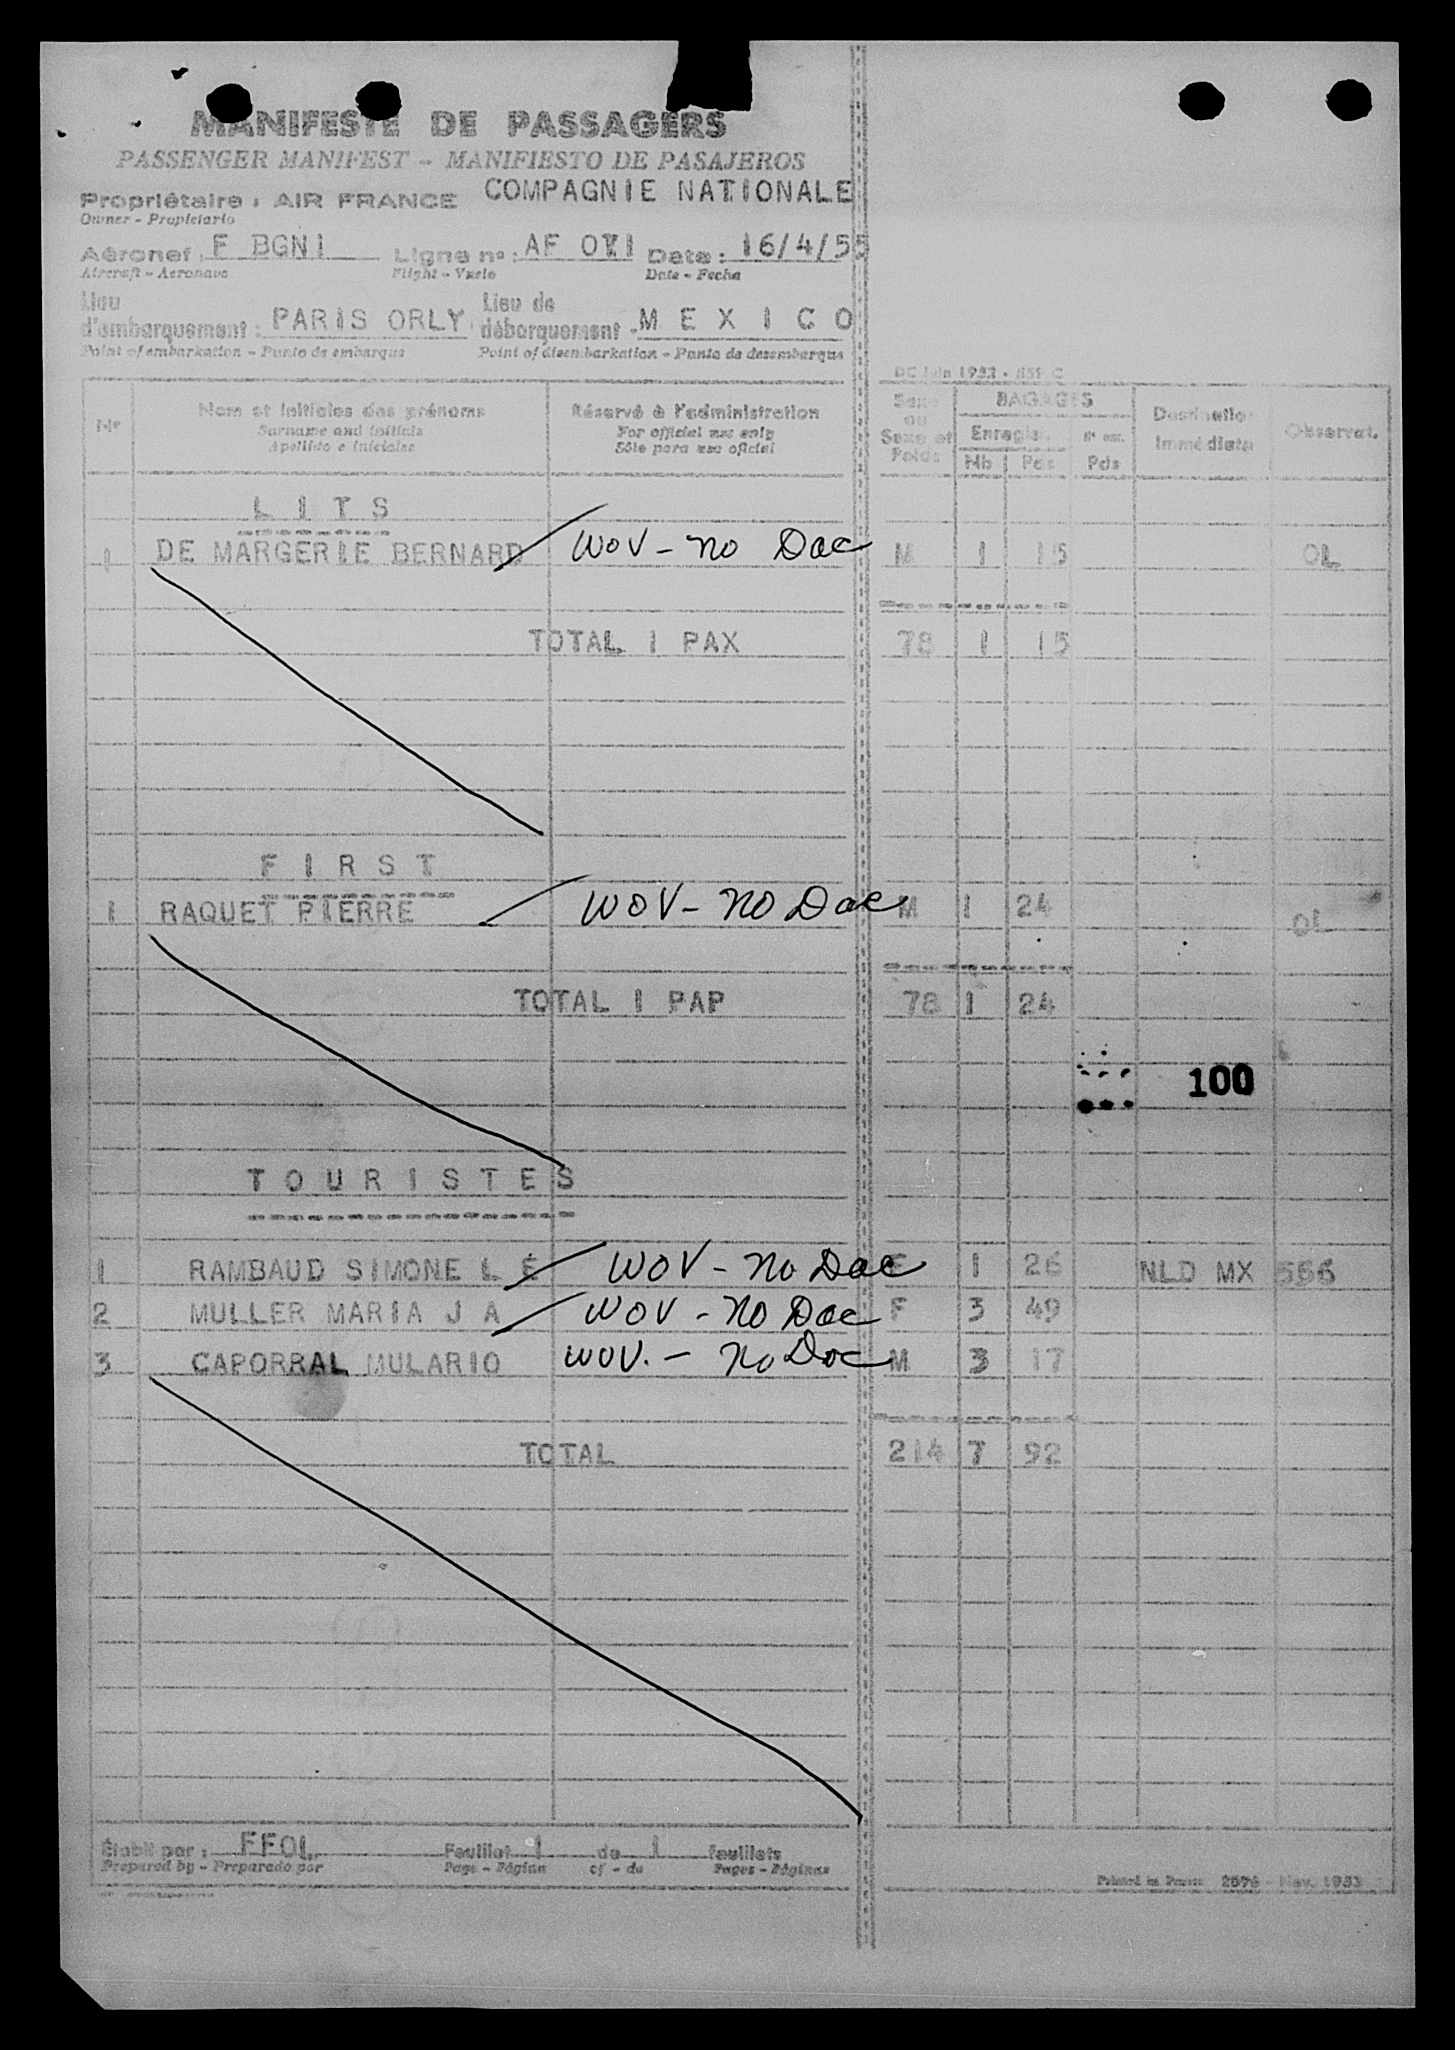 MANIFESTE DE PASSAGERS
PASSENGER MANIFEST - MANIFIESTO DE PASAJEROS
Propriétaire : AIR FRANCE COMPAGNIE NATIONALE
Owner - Propietario
Aéronef : F BGNI Ligne nº : AF 071 Date : 16/4/55
Aircraft - Aeronave Flight - Vuelo Date - Fecha
Lieu d'embarquement : PARIS ORLY Lieu de débarquement : M E X I C O
Point of embarkation - Punto de embarque Point of disembarkation - Punto de desembarque
Nº Nom et initiales des prénoms Réservé à l'administration Sexe ou Sexe et Poids BAGAGES Destination Immédiate Observat.
Surname and initials For official use only Enregis. Nº enr.
Apellido e iniciales Sólo para uso oficial Nb Pds Pds
L I T S
1 DE MARGERIE BERNARD WOV - no Doc M 1 15 OL
TOTAL 1 PAX 78 1 15
F I R S T
1 RAQUET PIERRE WOV - NO Doc M 1 24 OL
TOTAL 1 PAP 78 1 24
100
T O U R I S T E S
1 RAMBAUD SIMONE L E WOV - No Doc F 1 26 NLD MX 556
2 MULLER MARIA J A WOV - NO Doc F 3 49
3 CAPORRAL MULARIO WOV. - No Doc M 3 17
TOTAL 214 7 92
Établi par : FFOL Feuillet 1 de 1 feuillets
Prepared by - Preparado por Page - Página of - de Pages - Páginas
Printed in France 2576 - Nov. 1953